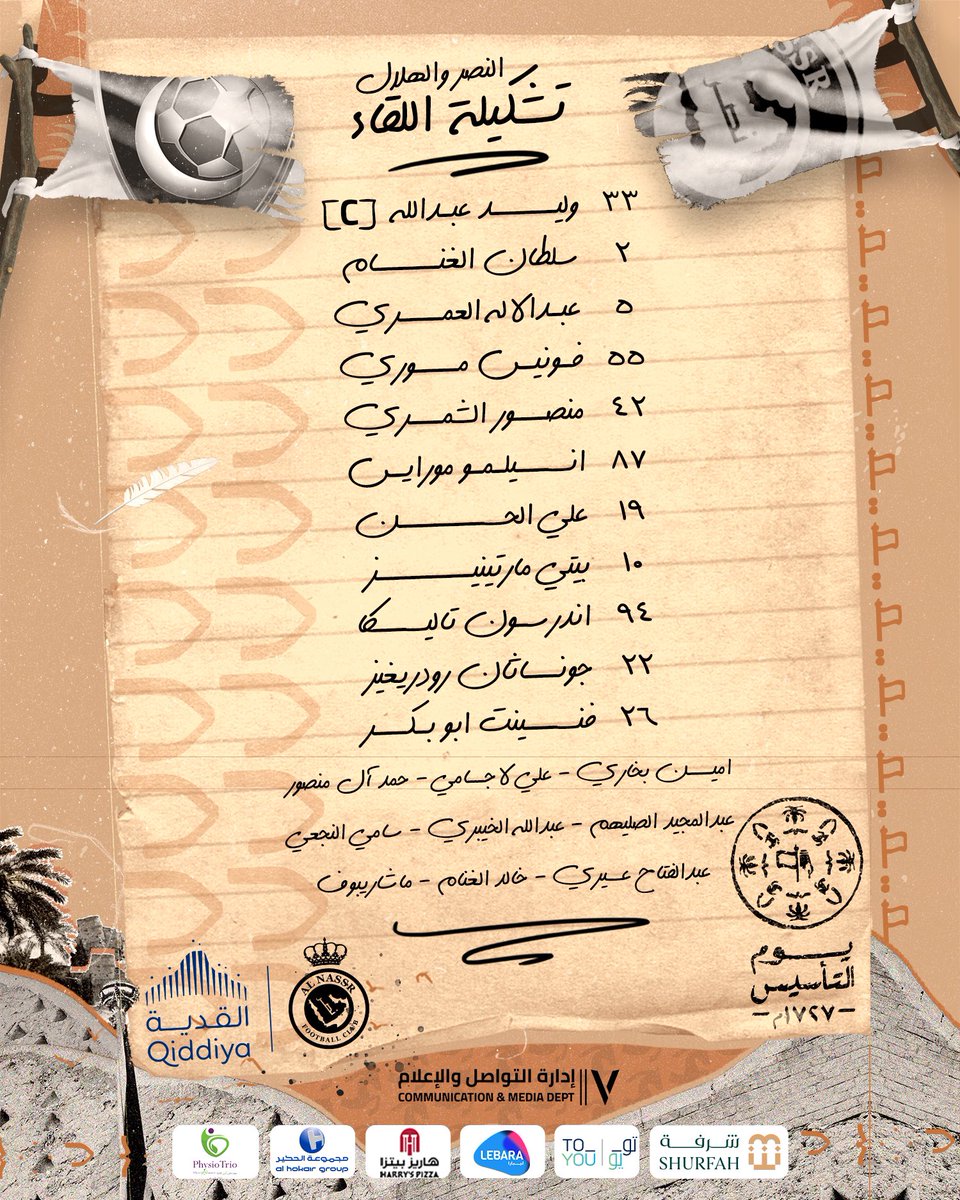 النصر والهلال
تشكيلة اللقاء
٣٣ وليد عبدالله [C]
٢ سلطان الغنام
٥ عبدالاله العمري
٥٥ فونيس موري
٤٢ منصور الشمري
٨٧ انسيلمو مورايس
١٩ علي الحسن
١٠ بيتي مارتينيز
٩٤ اندرسون تاليسكا
٢٢ جوناثان رودريغيز
٢٦ فنسينت ابو بكر
امين بخاري - علي لاجامي - حمد آل منصور
عبدالمجيد الصليهم - عبدالله الخيبري - سامي النجعي
عبدالفتاح عسيري - خالد الغنام - ماشاريبوف
يوم
التأسيس
- ١٧٢٧م -
القدية
Qiddiya
AL NASSR
FOOTBALL CLUB
إدارة التواصل والإعلام
COMMUNICATION & MEDIA DEPT
PhysioTrio
مجموعة الحكير
al hokair group
هاريز بيتزا
HARRY'S PIZZA
LEBARA
ليبارا
TO YOU
تو يو
شرفة
SHURFAH